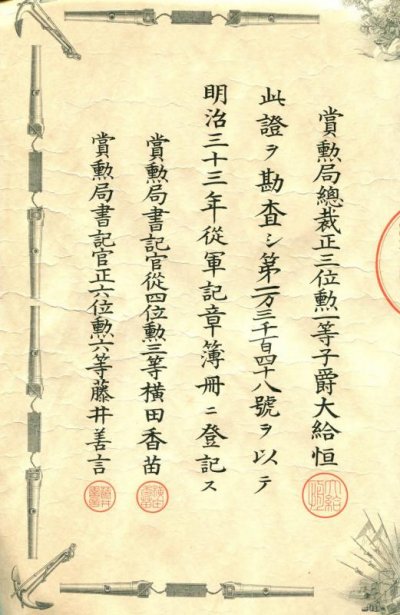 賞勲局總裁正三位勲一等子爵大給恒
此證ヲ勘査シ第一万三千百四十八號ヲ以テ
明治三十三年從軍記章簿冊ニ登記ス
賞勲局書記官從四位勲三等横田香苗
賞勲局書記官正六位勲六等藤井善言